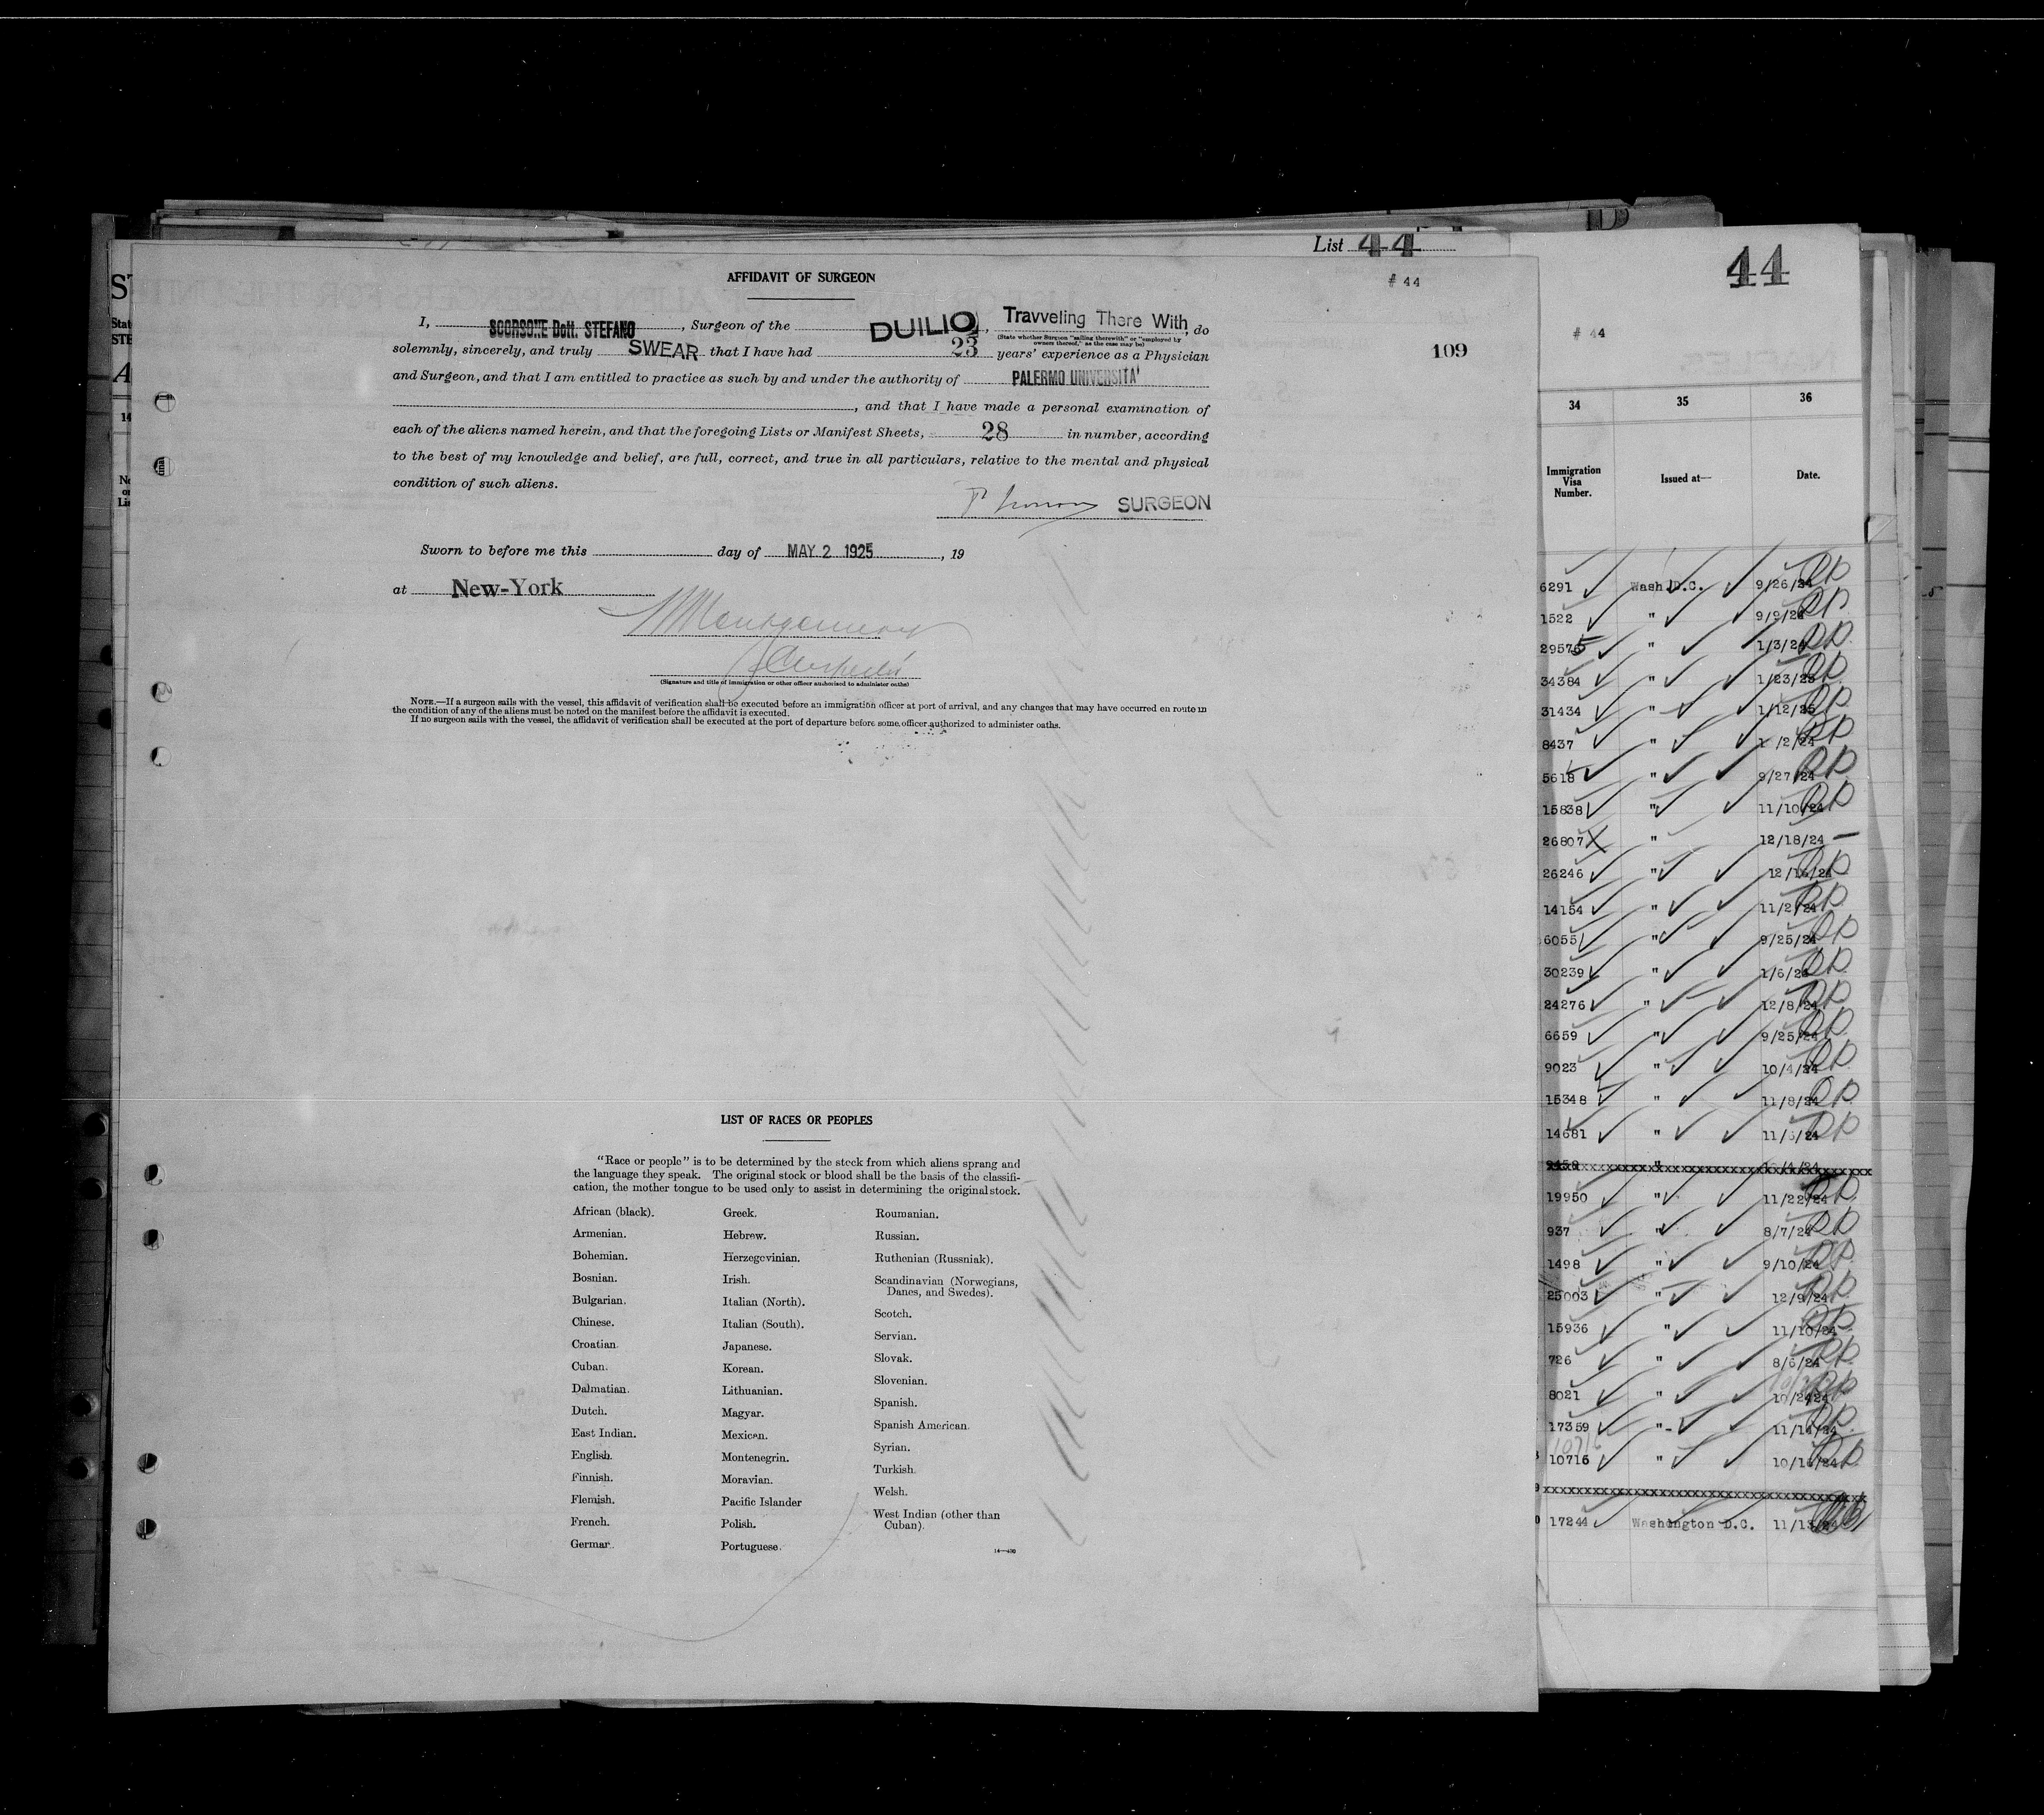 List 44
AFFIDAVIT OF SURGEON
# 44
I, SCORSONE Dott. STEFANO, Surgeon of the DUILIO, Travveling There With, do
(State whether Surgeon "sailing therewith" or "employed by owners thereof," as the case may be)
solemnly, sincerely, and truly SWEAR that I have had 23 years' experience as a Physician
109
and Surgeon, and that I am entitled to practice as such by and under the authority of PALERMO UNIVERSITA'
, and that I have made a personal examination of
each of the aliens named herein, and that the foregoing Lists or Manifest Sheets, 28 in number, according
to the best of my knowledge and belief, are full, correct, and true in all particulars, relative to the mental and physical
condition of such aliens.
SURGEON
Sworn to before me this day of MAY 2 1925, 19
at New-York
(Signature and title of immigration or other officer authorized to administer oaths)
NOTE.—If a surgeon sails with the vessel, this affidavit of verification shall be executed before an immigration officer at port of arrival, and any changes that may have occurred en route in
the condition of any of the aliens must be noted on the manifest before the affidavit is executed.
If no surgeon sails with the vessel, the affidavit of verification shall be executed at the port of departure before some officer authorized to administer oaths.
LIST OF RACES OR PEOPLES
"Race or people" is to be determined by the stock from which aliens sprang and
the language they speak. The original stock or blood shall be the basis of the classifi-
cation, the mother tongue to be used only to assist in determining the original stock.
African (black).
Armenian.
Bohemian.
Bosnian.
Bulgarian.
Chinese.
Croatian.
Cuban.
Dalmatian.
Dutch.
East Indian.
English.
Finnish.
Flemish.
French.
German.
Greek.
Hebrew.
Herzegovinian.
Irish.
Italian (North).
Italian (South).
Japanese.
Korean.
Lithuanian.
Magyar.
Mexican.
Montenegrin.
Moravian.
Pacific Islander
Polish.
Portuguese.
Roumanian.
Russian.
Ruthenian (Russniak).
Scandinavian (Norwegians,
Danes, and Swedes).
Scotch.
Servian.
Slovak.
Slovenian.
Spanish.
Spanish American.
Syrian.
Turkish.
Welsh.
West Indian (other than
Cuban).
14—430
44
# 44
34 35 36
Immigration Visa Number. Issued at— Date.
6291 Wash D.C. 9/26/24
1522 " 9/9/24
29576 " 1/3/24
34384 " 1/23/25
31434 " 1/12/25
8437 "
5618 " 9/27/24
15838 " 11/10/24
26807 " 12/18/24
26246 " 12/16/24
14154 " 11/2/24
6055 " 9/25/24
30239 " 1/6/25
24276 " 12/8/24
6659 " 9/25/24
9023 " 10/4/24
15348 " 11/8/24
14681 " 11/6/24
19950 " 11/22/24
937 " 8/7/24
1498 " 9/10/24
25003 " 12/9/24
15936 " 11/10/24
726 " 8/6/24
8021 " 10/2424
17359 " 11/14/24
10716
10716 " 10/16/24
17244 Washington D.C. 11/13/24